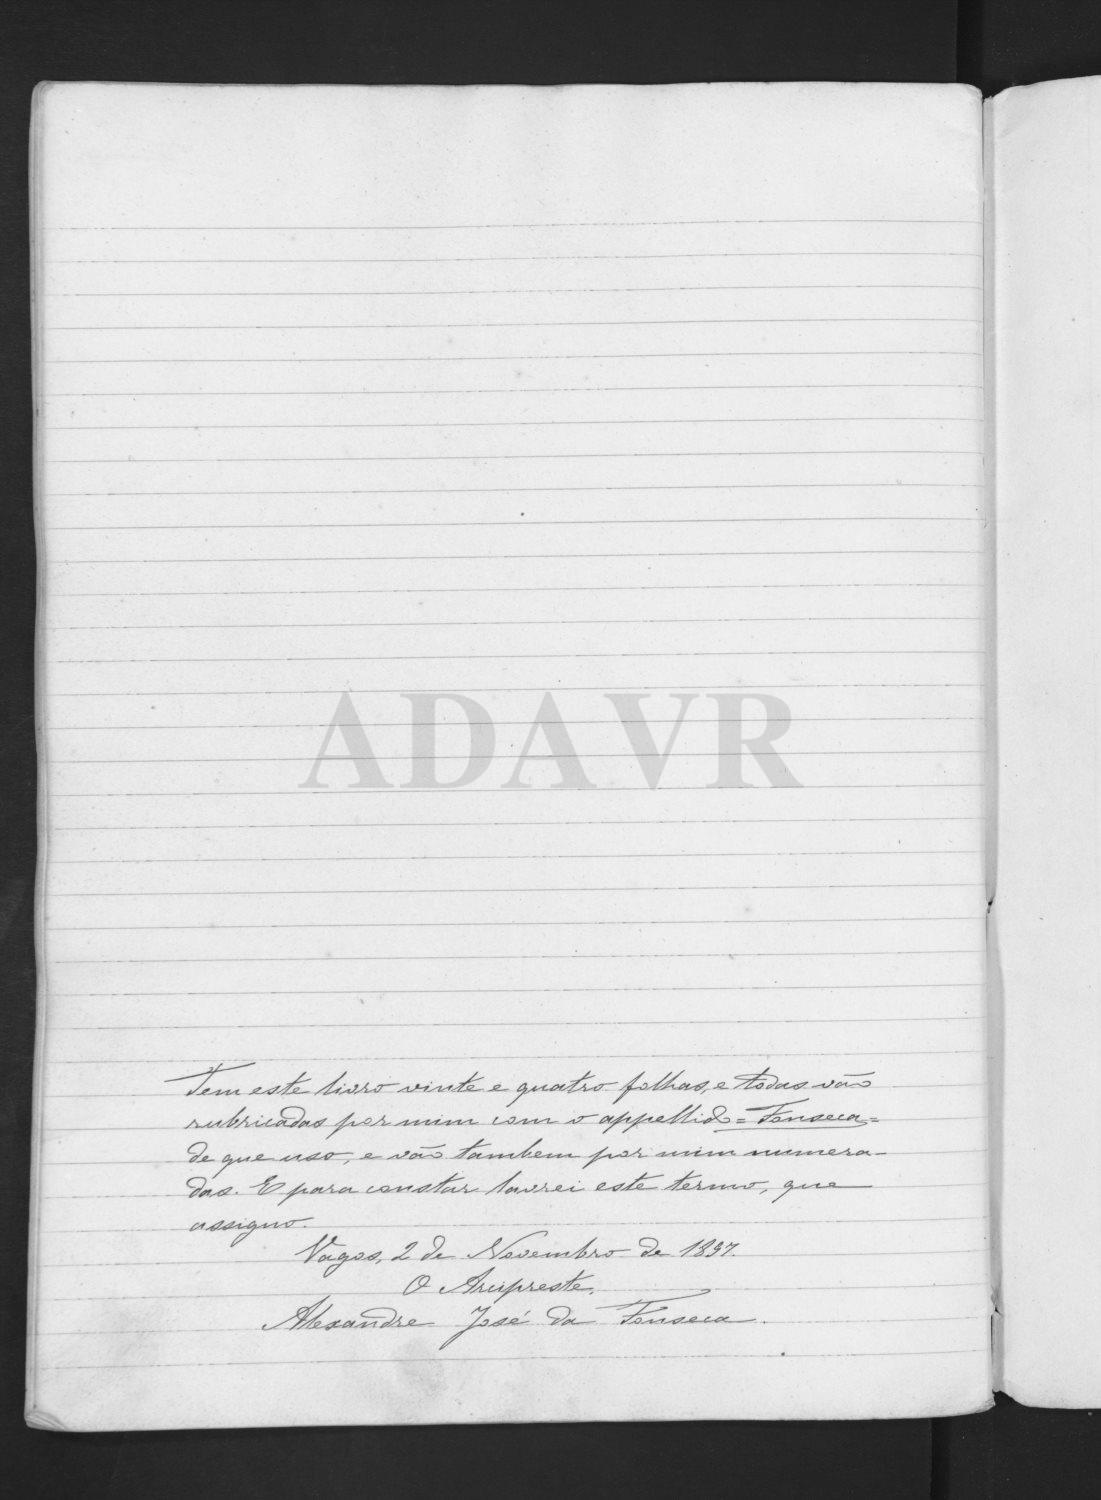 ADAVR
Tem este livro vinte e quatro folhas, e todas vão
rubricadas por mim com o appellido = Fonseca =
de que uso, e vão tambem por mim numera-
das. E para constar lavrei este termo, que
assigno.
Vagos, 2 de Novembro de 1897.
O Arcipreste,
Alexandre José da Fonseca.